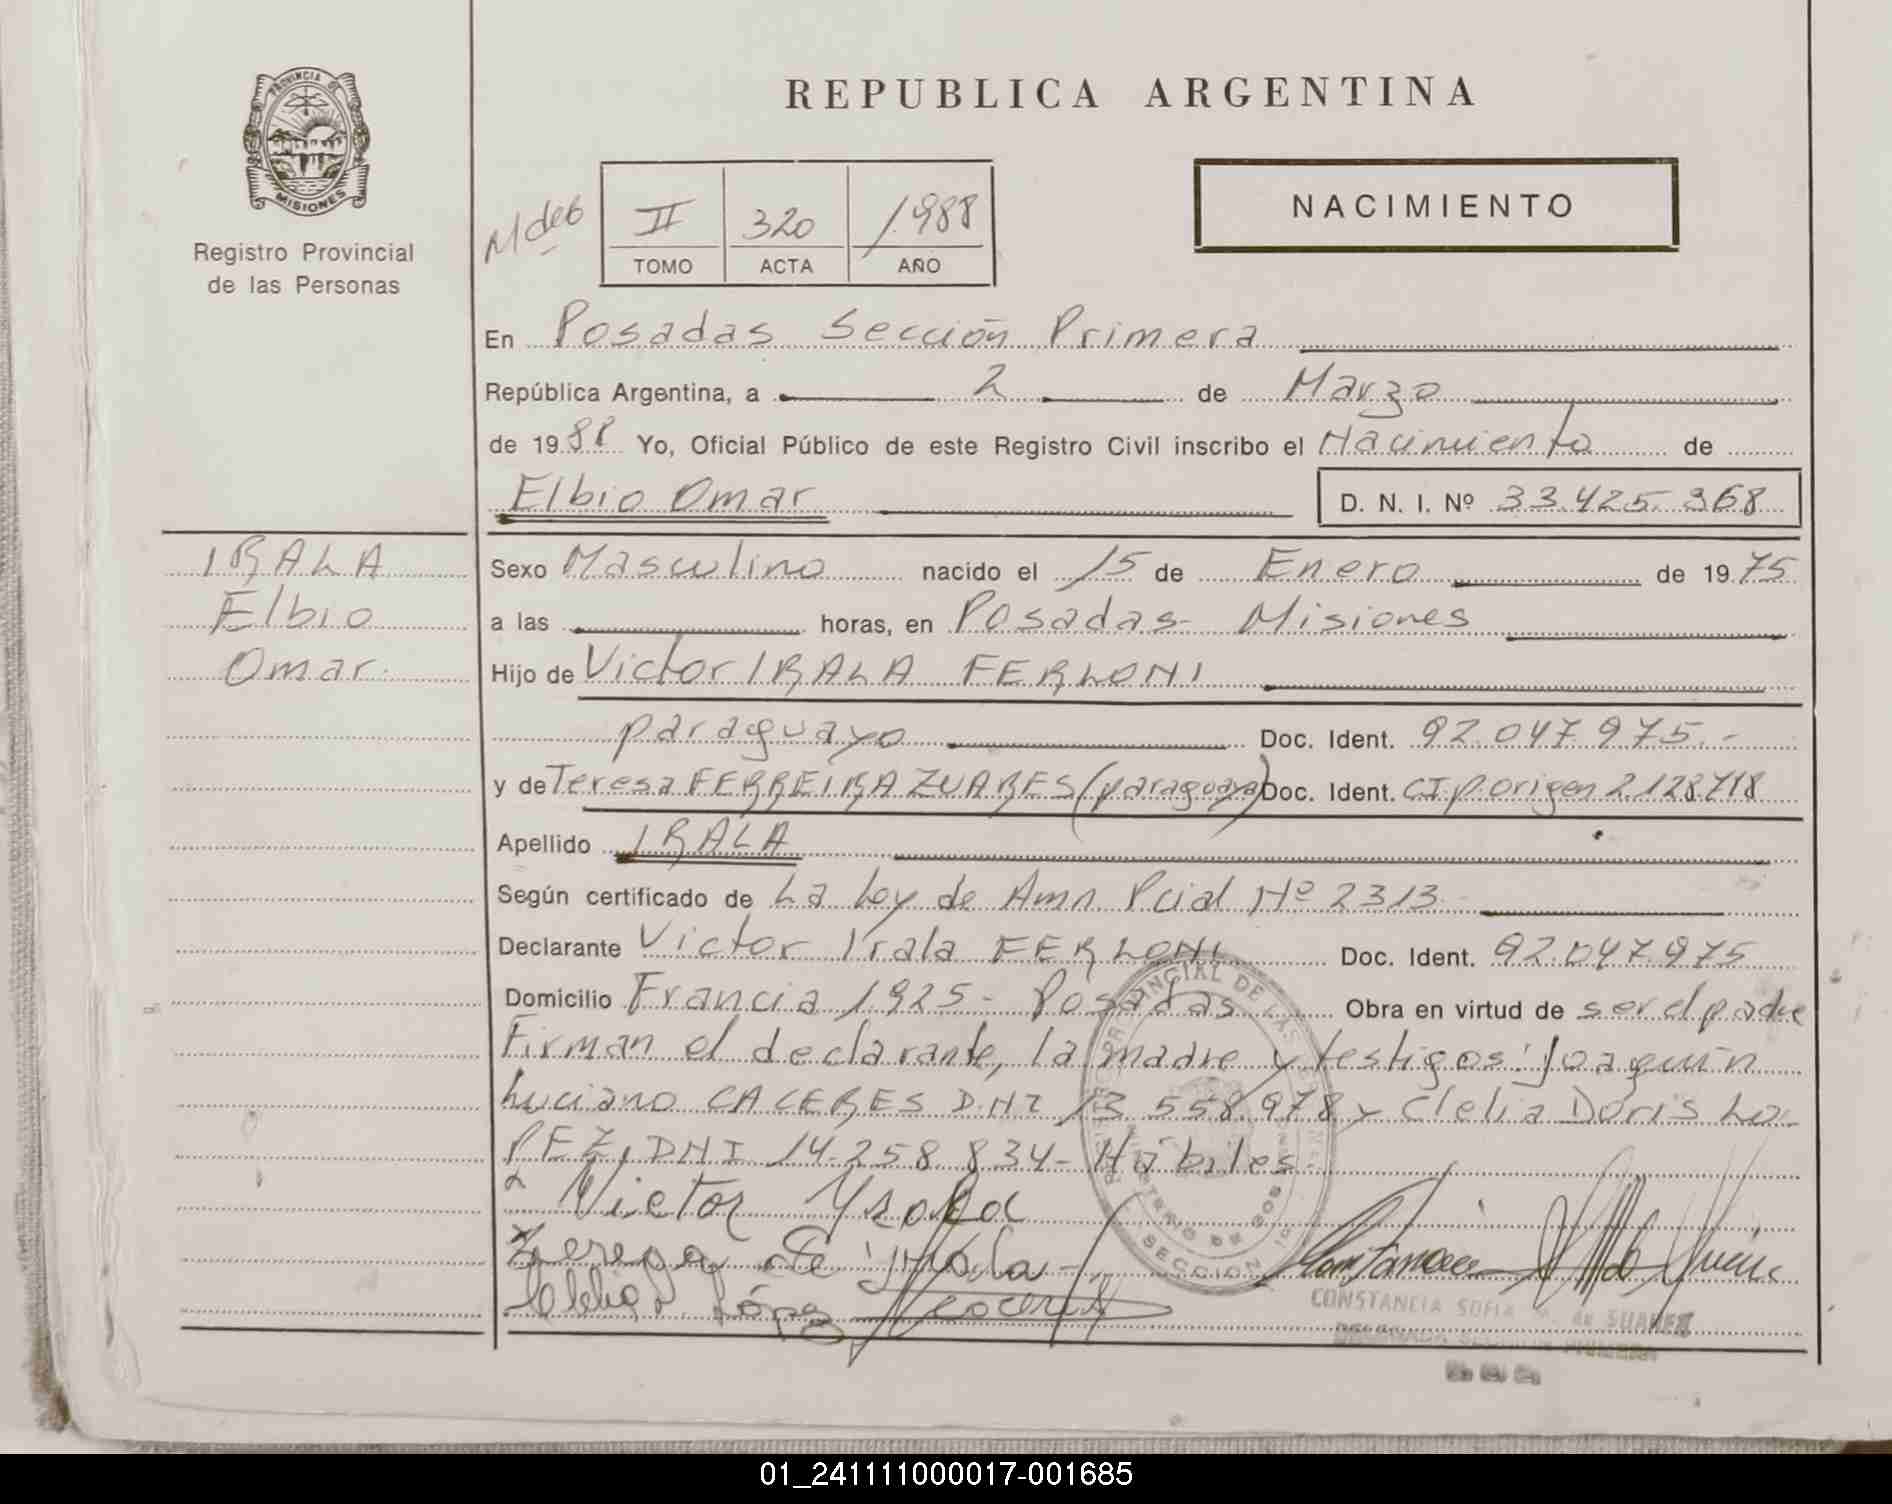 PROVINCIA DE
MISIONES
Registro Provincial
de las Personas
REPUBLICA ARGENTINA
NACIMIENTO
II 320 1988
TOMO ACTA AÑO
En Posadas Sección Primera
República Argentina, a 2 de Marzo
de 1988 Yo, Oficial Público de este Registro Civil inscribo el Nacimiento de
Elbio Omar D. N. I. Nº 33.425.368
IRALA
Elbio
Omar
Sexo Masculino nacido el 15 de Enero de 1975
a las horas, en Posadas- Misiones
Hijo de Victor IRALA FERLONI
paraguayo Doc. Ident. 92.047.975.-
y de Teresa FERREIRA ZUARES (paraguaya) Doc. Ident. CI p.origen 2128718
Apellido IRALA
Según certificado de La Ley de Amn. Pcial Nº 2313
Declarante Victor Irala FERLONI Doc. Ident. 92.047.975
Domicilio Francia 1925- Posadas Obra en virtud de ser el padre
Firman el declarante, la madre y testigos: Joaquín
Luciano CACERES D.N.I 13.558.978 y Clelia Doris Lo-
PEZ, DNI 14.258.834- Hábiles.
Victor Yrala
Teresa de Yrala
Clelia D. López
CONSTANCIA SOFIA de SUAREZ
DELEGADA SECCION PRIMERA
01_241111000017-001685